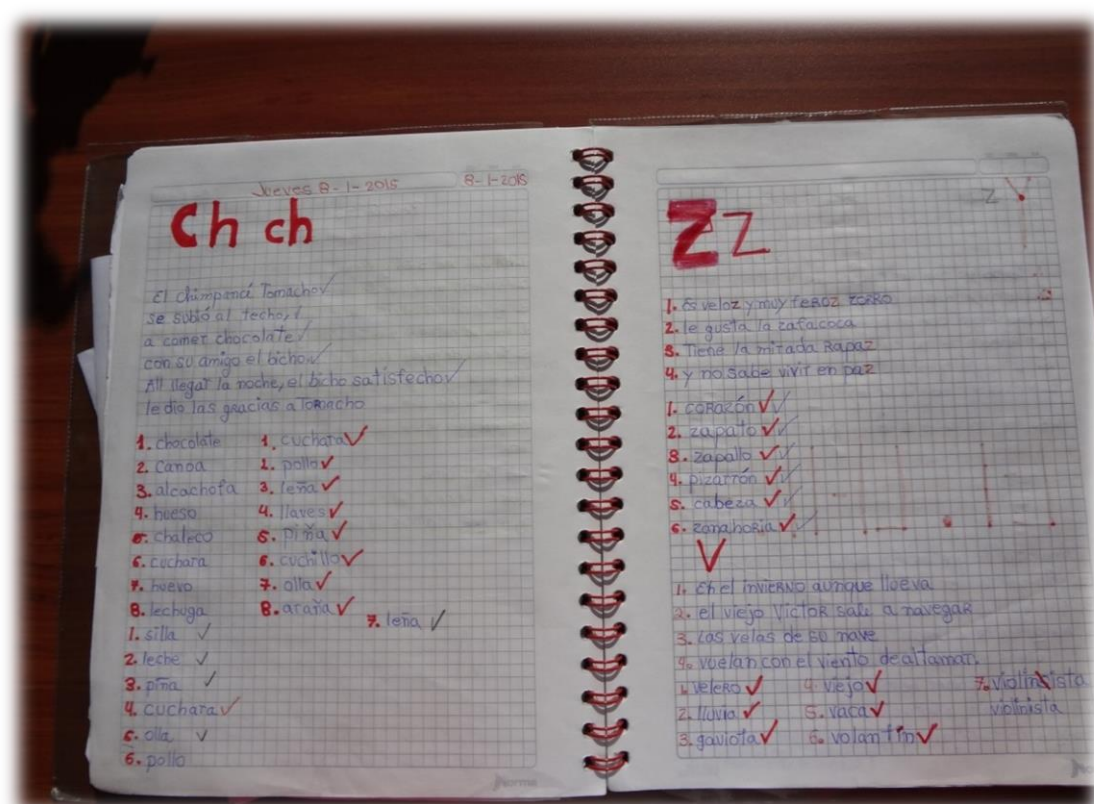 Jueves 8-1-2015 8-1-2015
Ch ch
El chimpancé Tomacho
se subió al techo,
a comer chocolate
con su amigo el bicho
All llegar la noche, el bicho satisfecho
le dio las gracias a Tomacho
1. chocolate
2. canoa
3. alcachofa
4. hueso
5. chaleco
6. cuchara
7. huevo
8. lechuga
1. cuchara
2. pollo
3. leña
4. llaves
5. piña
6. cuchillo
7. olla
8. araña
7. leña
1. silla
2. leche
3. piña
4. cuchara
5. olla
6. pollo
Norma
Z V
Z Z
1. es veloz y muy feroz zorro
2. le gusta la zafacoca
3. Tiene la mirada Rapaz
4. y no sabe vivir en paz
1. corazón
2. zapato
3. zapallo
4. pizarrón
5. cabeza
6. zanahoria
V
1. En el invierno aunque llueva
2. el viejo Victor sale a navegar
3. Las velas de su nave
4. vuelan con el viento de altamar.
1. velero
2. lluvia
3. gaviota
4. viejo
5. vaca
6. volantín
7. violinsista
violinista